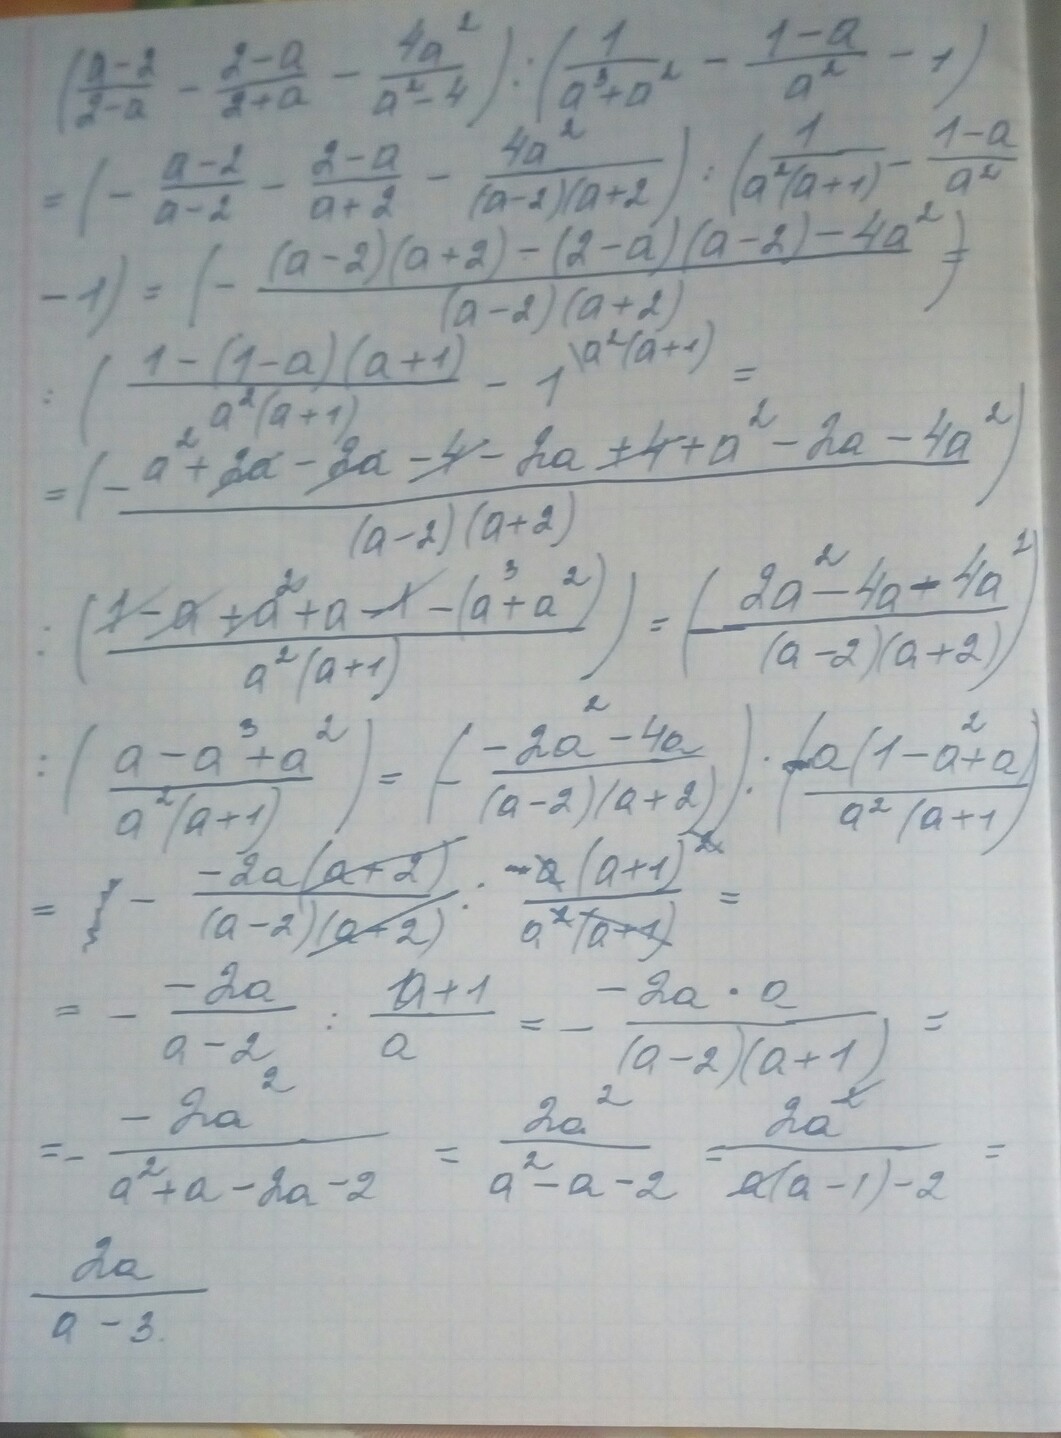 ((a-2)/(2-a) - (2-a)/(2+a) - 4a²/(a²-4)) : (1/(a³+a²) - (1-a)/a² - 1)
= (- (a-2)/(a-2) - (2-a)/(a+2) - 4a²/((a-2)(a+2)) : (1/(a²(a+1)) - (1-a)/a²
- 1) = (- ((a-2)(a+2) - (2-a)(a-2) - 4a²)/((a-2)(a+2))) =
: ((1-(1-a)(a+1))/(a²(a+1)) - 1 \a²(a+1) =
= (- (a²+2a-2a-4-2a+4+a²-2a-4a²)/((a-2)(a+2)))
: ((1-a+a²+a-1-(a³+a²))/(a²(a+1))) = (- (2a²-4a-4a²)/((a-2)(a+2)))
: ((a-a³+a²)/(a²(a+1))) = (- (-2a²-4a)/((a-2)(a+2))) : (a(1-a²+a)/(a²(a+1))
= - (-2a(a+2))/((a-2)(a+2)) : (-a(a+1)²)/(a²(a+1)) =
= - (-2a)/(a-2) : (a+1)/a = - (-2a·a)/((a-2)(a+1)) =
= - (-2a²)/(a²+a-2a-2) = 2a²/(a²-a-2) = 2a²/(a(a-1)-2) =
2a/(a-3.)